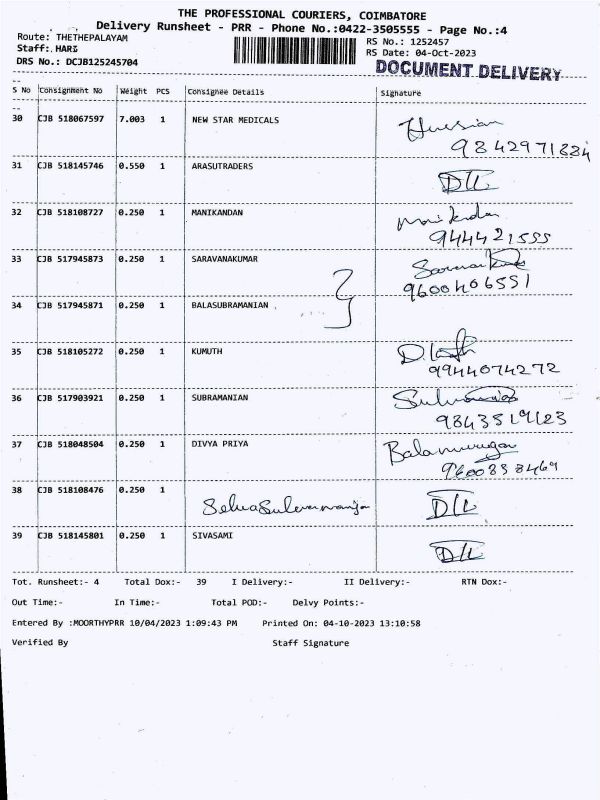 THE PROFESSIONAL COURIERS, COIMBATORE
Delivery Runsheet - PRR - Phone No.:0422-3505555 - Page No.:4
Route: THETHEPALAYAM
RS No.: 1252457
Staff: HARI
RS Date: 04-Oct-2023
DRS No.: DCJB125245704
DOCUMENT DELIVERY
S No Consignment No Weight PCS Consignee Details Signature
30 CJB 518067597 7.003 1 NEW STAR MEDICALS
31 CJB 518145746 0.550 1 ARASUTRADERS D/L
32 CJB 518108727 0.250 1 MANIKANDAN Manikandan
9444421555
33 CJB 517945873 0.250 1 SARAVANAKUMAR
9600406551
34 CJB 517945871 0.250 1 BALASUBRAMANIAN
35 CJB 518105272 0.250 1 KUMUTH
9944074272
36 CJB 517903921 0.250 1 SUBRAMANIAN
37 CJB 518048504 0.250 1 DIVYA PRIYA Balamurugan
38 CJB 518108476 0.250 1 D/L
39 CJB 518145801 0.250 1 SIVASAMI D/L
Tot. Runsheet:- 4 Total Dox:- 39 I Delivery:- II Delivery:- RTN Dox:-
Out Time:- In Time:- Total POD:- Delvy Points:-
Entered By :MOORTHYPRR 10/04/2023 1:09:43 PM Printed On: 04-10-2023 13:10:58
Verified By Staff Signature